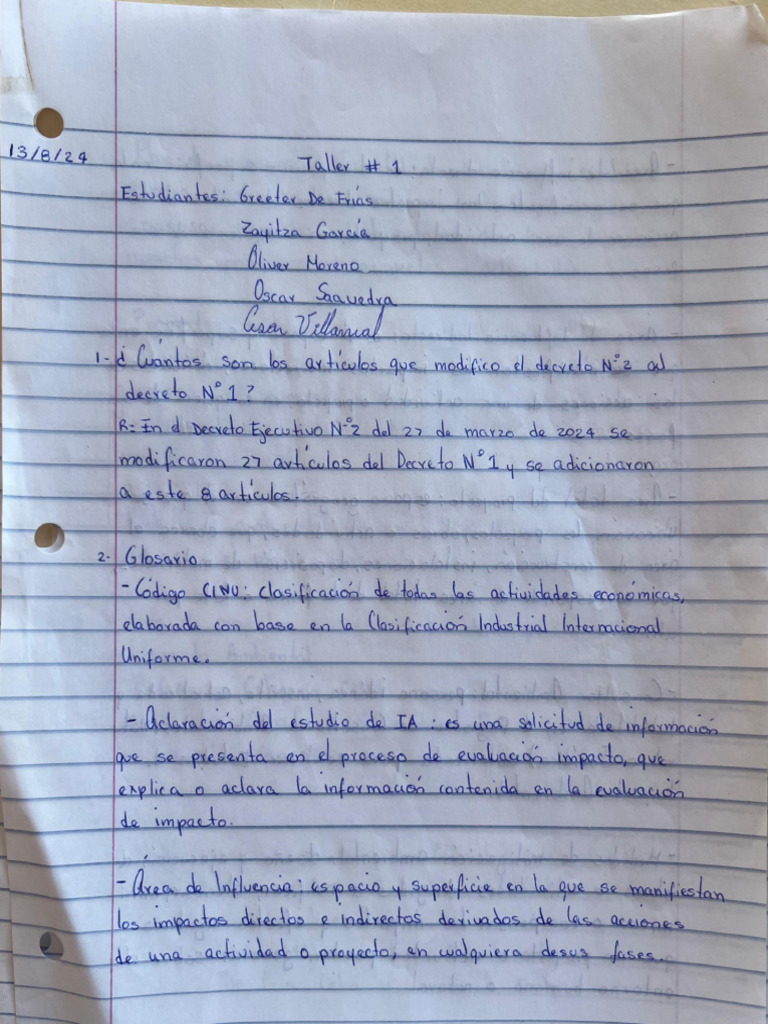 13/8/24
Taller # 1
Estudiantes: Greeter De Frías
Zayitza García
Oliver Moreno
Oscar Saavedra
Cesar Villarreal
1- ¿Cuántos son los artículos que modifico el decreto N°2 al
decreto N°1?
R= En el Decreto Ejecutivo N°2 del 27 de marzo de 2024 se
modificaron 27 artículos del Decreto N°1 y se adicionaron
a este 8 artículos.
2- Glosario
- Código CINU: Clasificación de todas las actividades económicas,
elaborada con base en la Clasificación Industrial Internacional
Uniforme.
- Aclaración del estudio de IA: es una solicitud de información
que se presenta en el proceso de evaluación impacto, que
explica o aclara la información contenida en la evaluación
de impacto.
- Área de Influencia: espacio y superficie en la que se manifiestan
los impactos directos e indirectos derivados de las acciones
de una actividad o proyecto, en cualquiera desus fases.